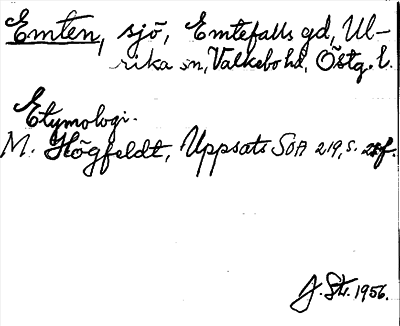 Emten, sjö, Emtefalls gd, Ul-
rika sn, Valkebo hd, Östg. l.
Etymologi.
M. Högfeldt, Uppsats SOA 219, s. f.
J. Str. 1956.